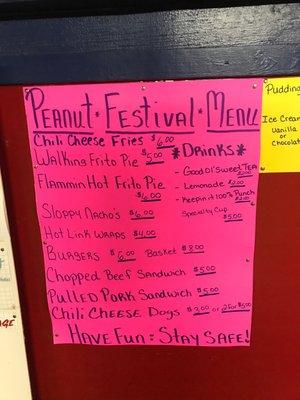 Peanut * Festival * Menu
Chili Cheese Fries $6.00
Walking Frito Pie $5.00
*Drinks*
Flammin Hot Frito Pie $6.00
- Good Ol' Sweet Tea $2.00
- Lemonade $2.00
- Keepin it 100% Punch $2.00
Specialty Cup $5.00
Sloppy Nacho's $6.00
Hot Link Wraps $4.00
Burgers $6.00 Basket $8.00
Chopped Beef Sandwich $5.00
Pulled Pork Sandwich $5.00
Chili Cheese Dogs $3.00 or 2 for $5.00
Have Fun = Stay Safe!
Pudding
Ice Cream
Vanilla
or
Chocolat